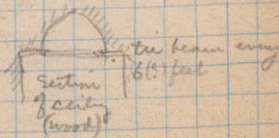 tie beam every
6ft. feet
Section
of ceiling
(wood)